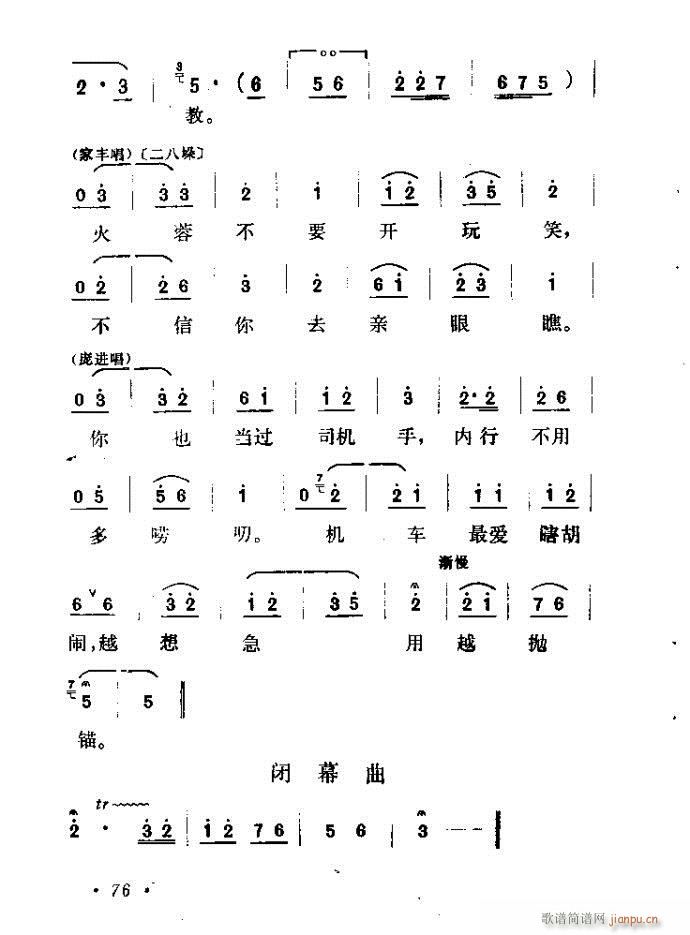 2 · 3 | 5 · ( 6 | 5 6 | 2 2 7 | 6 7 5 ) |
教。
(家丰唱)〔二八垛〕
0 3 | 3 3 | 2 | 1 | 1 2 | 3 5 | 2
火 蓉 不 要 开 玩 笑,
0 2 | 2 6 | 3 | 2 | 6 1 | 2 3 | 1
不 信 你 去 亲 眼 瞧。
(庞进唱)
0 3 | 3 2 | 6 1 | 1 2 | 3 | 2 · 2 | 2 6
你 也 当过 司机 手, 内行 不用
0 5 | 5 6 | 1 | 0 2 | 2 1 | 1 1 | 1 2
多 唠 叨。 机 车 最爱 瞎胡
渐慢
6 6 | 3 2 | 1 2 | 3 5 | 2 | 2 1 | 7 6
闹,越 想 急 用 越 抛
5 | 5
锚。
闭 幕 曲
tr
2 · 3 2 | 1 2 7 6 | 5 6 | 3 — —
· 76 ·
歌谱简谱网 jianpu.cn